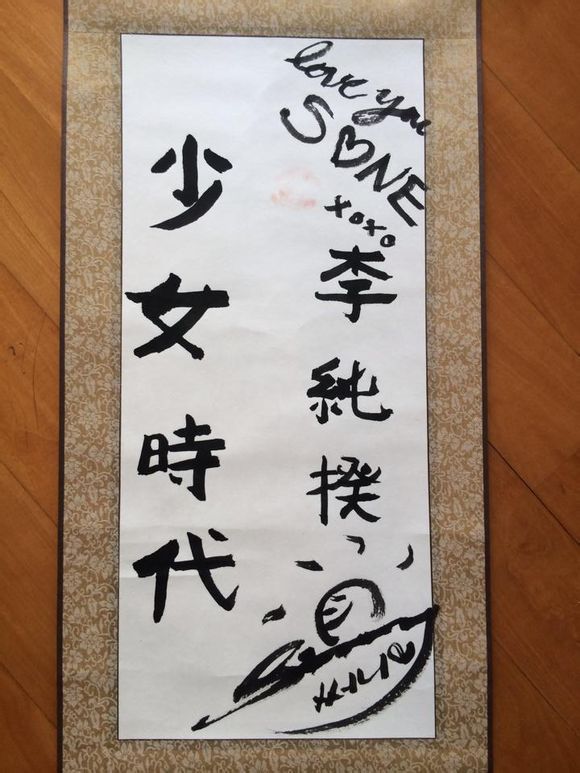 love you
S♡NE
xoxo
李純揆
少女時代